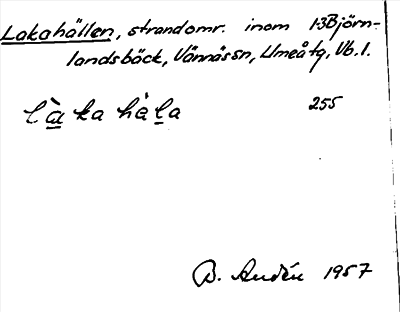 Lakahällen, strandomr. inom 1-3 Björn-
landsbäck, Vännässn, Umeåtg, Vb.l.
l'à ka hàla 255
B. Andén 1957